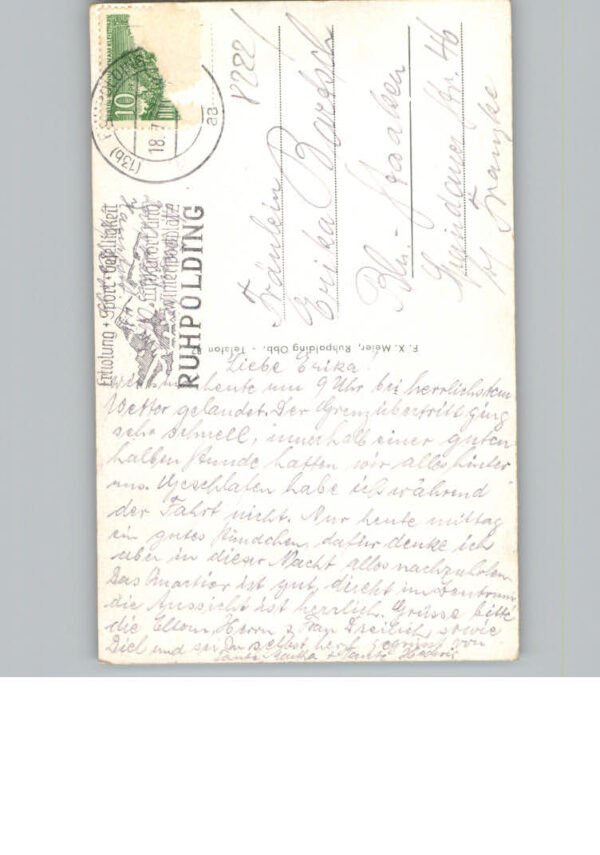 10
(13b)
18.7
aa
Erholung + Sport + Geselligkeit
RUHPOLDING
P222/
Fräulein
Erika
Bln.- Staaken
Str. 46
b/ Franzke
F. X. Meier, Ruhpolding Obb. - Telefon
Liebe Erika!
heute um 9 Uhr bei herrlichstem
Wetter gelandet. Der Grenzübertritt ging
sehr schnell, innerhalb einer guten
halben Stunde hatten wir alles hinter
uns. Geschlafen habe ich während
der Fahrt nicht. Nur heute mittag
ein gutes Stündchen, dafür denke ich
aber in dieser Nacht alles nachzuholen.
Das Quartier ist gut, direkt im Zentrum,
die Aussicht ist herrlich. Grüsse bitte
die Eltern, Herrn u. Frau sowie
Dich und sei Du selbst herzl. gegrüsst von
Tante